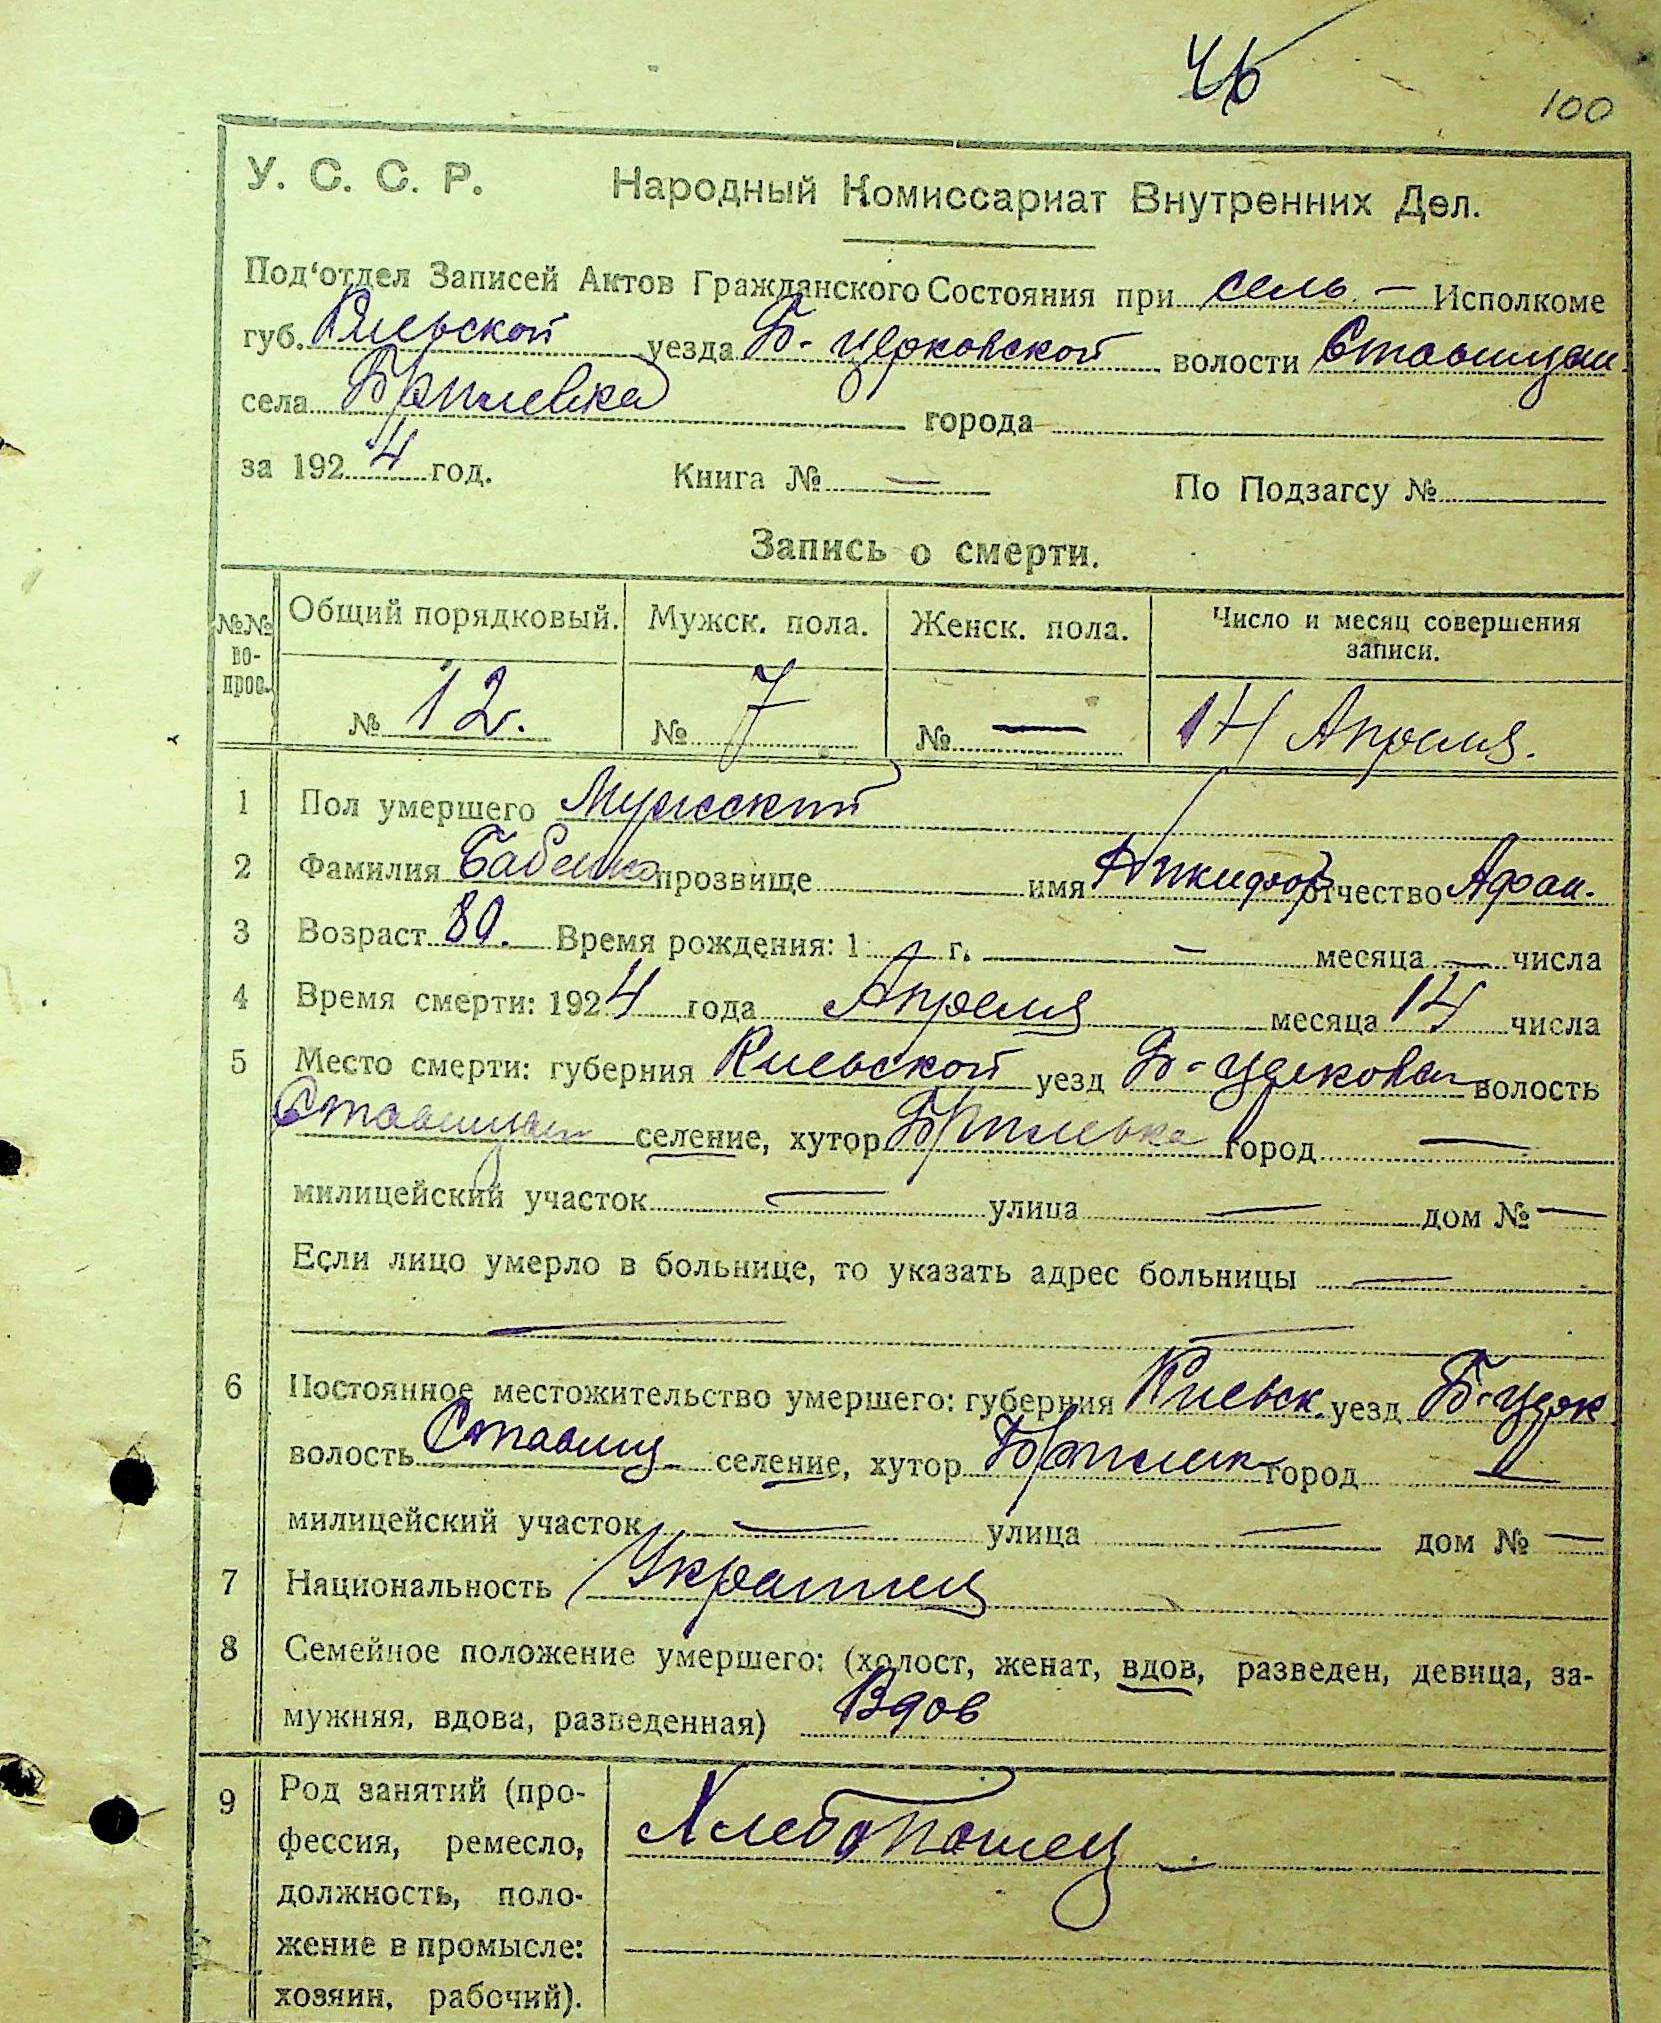 46
100
У. С. С. Р. Народный Комиссариат Внутренних Дел.
Под'отдел Записей Актов Гражданского Состояния при сель - Исполкоме
губ. Киевской уезда Б-церковской волости Ставищан.
села города
за 1924 год. Книга № — По Подзагсу №
Запись о смерти.
№№ вопрос. Общий порядковый. Мужск. пола. Женск. пола. Число и месяц совершения записи.
№ 12. № 7 № — 14 Апреля.
1 Пол умершего Мужеский
2 Фамилия Бабенко прозвище имя Никифор отчество Афан.
3 Возраст 80. Время рождения: 1 г. — месяца — числа
4 Время смерти: 1924 года Апреля месяца 14 числа
5 Место смерти: губерния Киевской уезд Б-церковск волость
Ставищан селение, хутор город —
милицейский участок — улица — дом № —
Если лицо умерло в больнице, то указать адрес больницы —
—
6 Постоянное местожительство умершего: губерния Киевск. уезд Б-церк
волость Ставищ селение, хутор город —
милицейский участок — улица — дом № —
7 Национальность Украинец
8 Семейное положение умершего: (холост, женат, вдов, разведен, девица, за-
мужняя, вдова, разведенная) Вдов
9 Род занятий (про- Хлебопашец
фессия, ремесло,
должность, поло-
жение в промысле:
хозяин, рабочий).